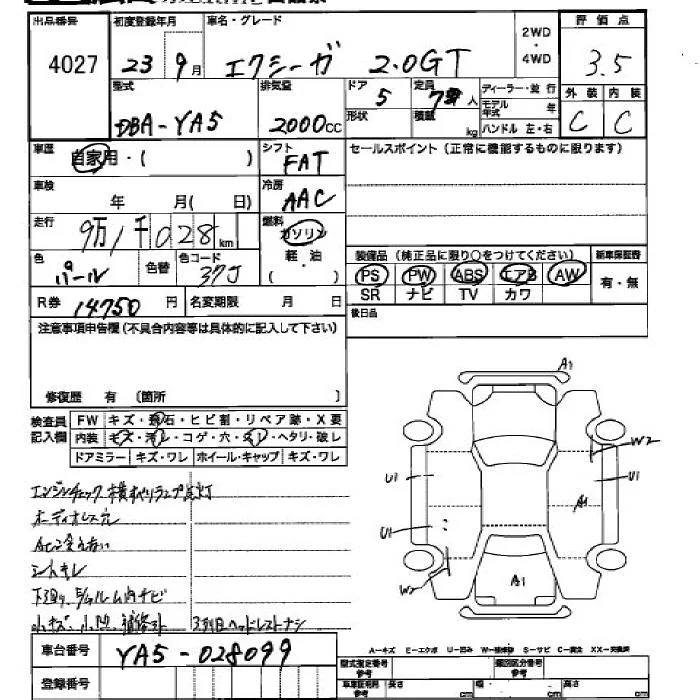 出品番号 初度登録年月 車名・グレード 2WD・4WD 評価点
4027 23 9月 エクシーガ 2.0GT 3.5
型式 排気量 ドア 定員 ディーラー・並行 外装 内装
DBA-YA5 2000cc 5 7 人 モデル年式 年 C C
形状 積載 kg ハンドル 左・右
車歴 自家用・( ) シフト FAT セールスポイント(正常に機能するものに限ります)
車検 年 月( 日) 冷房 AAC
走行 9万1千028km 燃料 ガソリン 軽・油 ( )
装備品(純正品に限り○をつけてください) 新車保証書
色 パール 色替 色コード 37J PS PW ABS エアB AW 有・無
SR ナビ TV カワ
R券 14750円 名変期限 月 日 後日品
注意事項申告欄(不具合内容等は具体的に記入して下さい)
修復歴 有 (箇所 )
検査員記入欄 FW キズ・飛石・ヒビ割・リペア跡・X要
内装 キズ・汚レ・コゲ・穴・スレ・ヘタリ・破レ
ドアミラー キズ・ワレ ホイール・キャップ キズ・ワレ
A1
W2
U1 U1
A1
U1
W2
A1
エンジンチェック 横すべりランプ点灯
オーディオレス穴
シートキレ
小キズ、小凹、補修跡 3列目ヘッドレストナシ
車台番号 YA5-028099
A-キズ E-エクボ U-凹み W-補修跡 S-サビ C-腐食 XX-交換済
登録番号 型式指定番号 参考 類別区分番号 参考
車庫証明用 参考 長さ cm 幅 cm 高さ cm